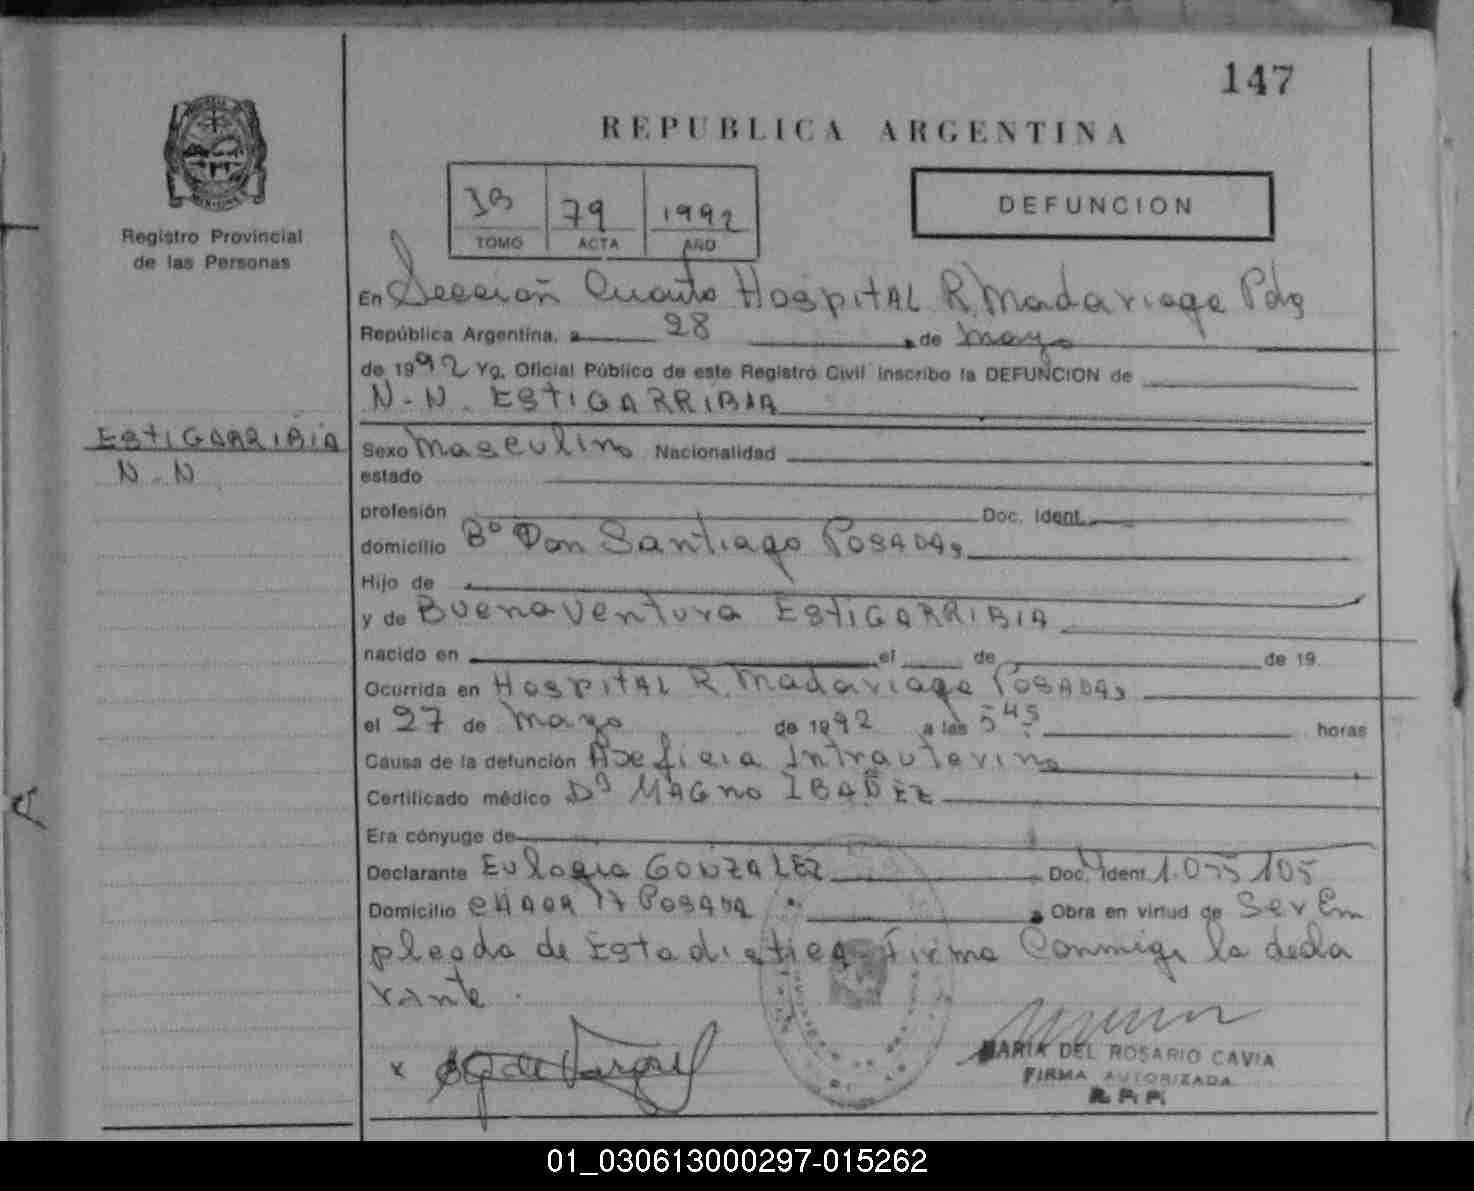 147
REPUBLICA ARGENTINA
79 1992
TOMO ACTA AÑO
DEFUNCION
Registro Provincial
de las Personas
En Sección Cuarta Hospital R. Madariaga Pdas
República Argentina, a 28 de mayo
de 1992 Yo, Oficial Público de este Registro Civil inscribo la DEFUNCION de
N.N. ESTIGARRIBIA
ESTIGARRIBIA
N.N
Sexo Masculino Nacionalidad
estado
profesión Doc. Ident.
domicilio Bº Don Santiago POSADAS
Hijo de
y de Buenaventura ESTIGARRIBIA
nacido en el de de 19
Ocurrida en Hospital R. Madariaga POSADAS
el 27 de mayo de 1992 a las 5 45 horas
Causa de la defunción Asficia Intrauterina
Certificado médico Dr MAGNO IBAÑEZ
Era cónyuge de
Declarante Eulogia GONZALEZ Doc. Ident. 1.055.105
Domicilio CHACRA 17 POSADA Obra en virtud de Ser Em
pleada de Estadistica firma Conmigo la decla
rante.
x
MARIA DEL ROSARIO CAVIA
FIRMA AUTORIZADA
01_030613000297-015262